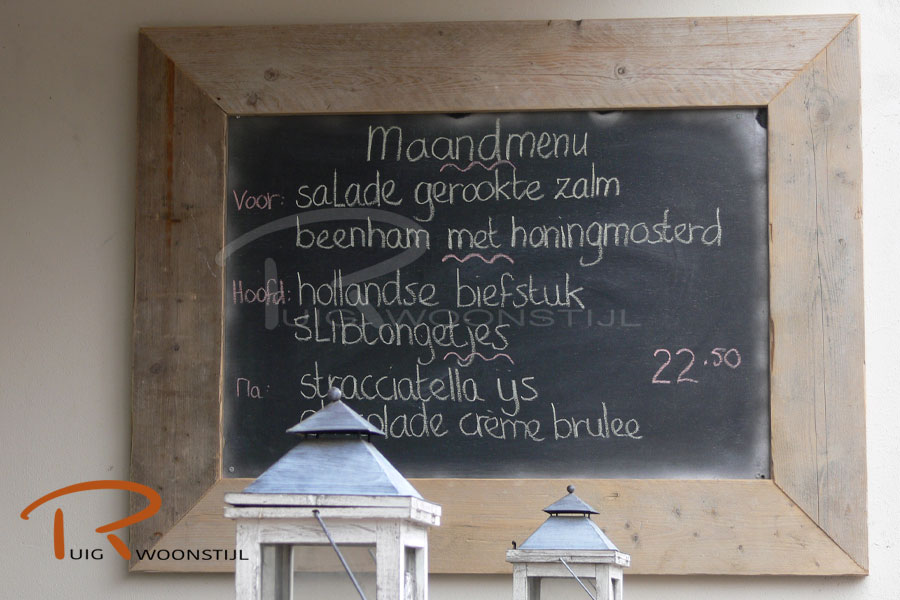 Maandmenu
Voor: salade gerookte zalm
beenham met honingmosterd
Hoofd: hollandse biefstuk
sliptongetjes
Na: stracciatella ijs
22.50
crème brulee
RUIG WOONSTIJL
RUIG & WOONSTIJL